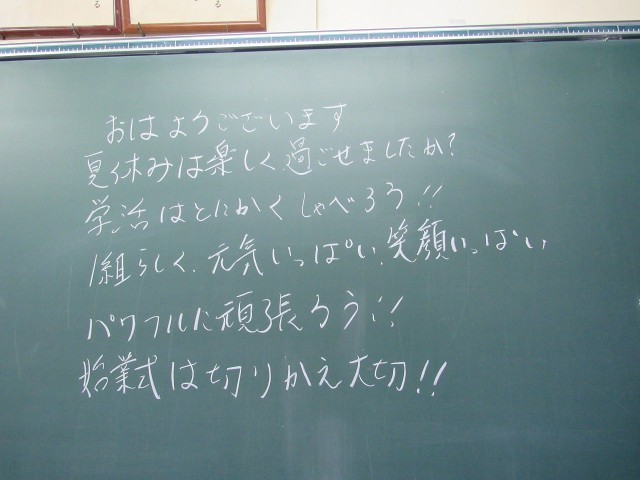 る
る
おはようございます
夏休みは楽しく過ごせましたか?
学活はとにかくしゃべろう!!
1組らしく、元気いっぱい、笑顔いっぱい
パワフルに頑張ろう!!
始業式は切りかえ大切!!